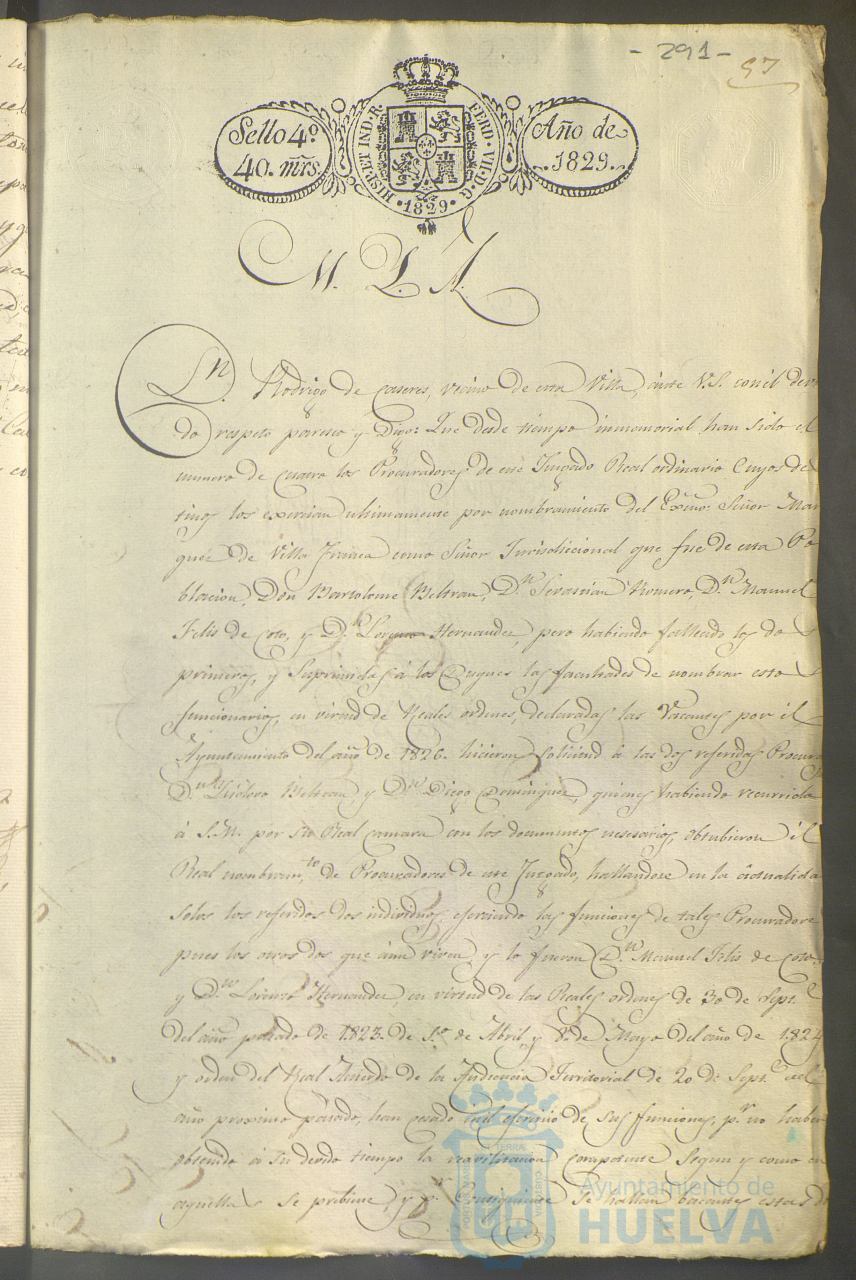 - 291 -
57
Sello 4º
40. mrs.
HISP. ET IND. R.
FERD. VII. D. G.
1829
Año de
1829.
M. Y. A.
Dn. Rodrigo de Caseres, vecino de esta Villa, ánte V.S. con il devi
do respeto paresco y Digo: Que desde tiempo inmemorial han sido el
numero de cuatro los Procuradores de ese Juzgado Real ordinario cuyos des
tinos los exercian ultimamente por nombramiento del Exmo. Señor Mar
qués de Villa franca como Señor Jurisdiccional que fue de esta Po
blacion, Don Bartolome Beltran, Dn. Sevastian Romero, Dn. Manuel
Felis de Coto, y Dn. Lorenzo Hernandez, pero habiendo fallecido los dos
primeros, y Suprimidas á los Duques las facultades de nombrar estos
funcionarios, en virtud de Reales ordenes, declaradas las Vacantes por él
Ayuntamiento del año de 1826. hicieron solicitud á las dos referidas Procuras
Dn. Isidoro Beltran y Dn. Diego Dominguez, quienes habiendo recurrido
á S.M. por su Real Camara con los documentos nesesarios, obtubieron él
Real nombramto. de Procuradores de este Juzgado, hallandose en la actualidad
Solos los referidos dos individuos, ejerciendo las funciones de tales Procuradores
pues los otros dos que aún viven, y lo fueron Dn. Manuel Felis de Coto,
y Dn. Lorenzo Hernandez, en virtud de las Reales ordenes de 30 de Septe.
del año pasado de 1823. de 1º de Abril, y 8. de Mayo del año de 1824
y orden del Real Acuerdo de la Audiencia Territorial de 20 de Septe. del
año proximo pasado, han cesado en el ejersicio de sus funciones, pr. no haber
obtenido á su devido tiempo la reavilitacion competente Segun y como en
aquellas se previene, y pr. Consiguiente Se hallan bacantes estas dos
TERRA
PORTUS MARIS
CUSTODIO
Ayuntamiento de
HUELVA